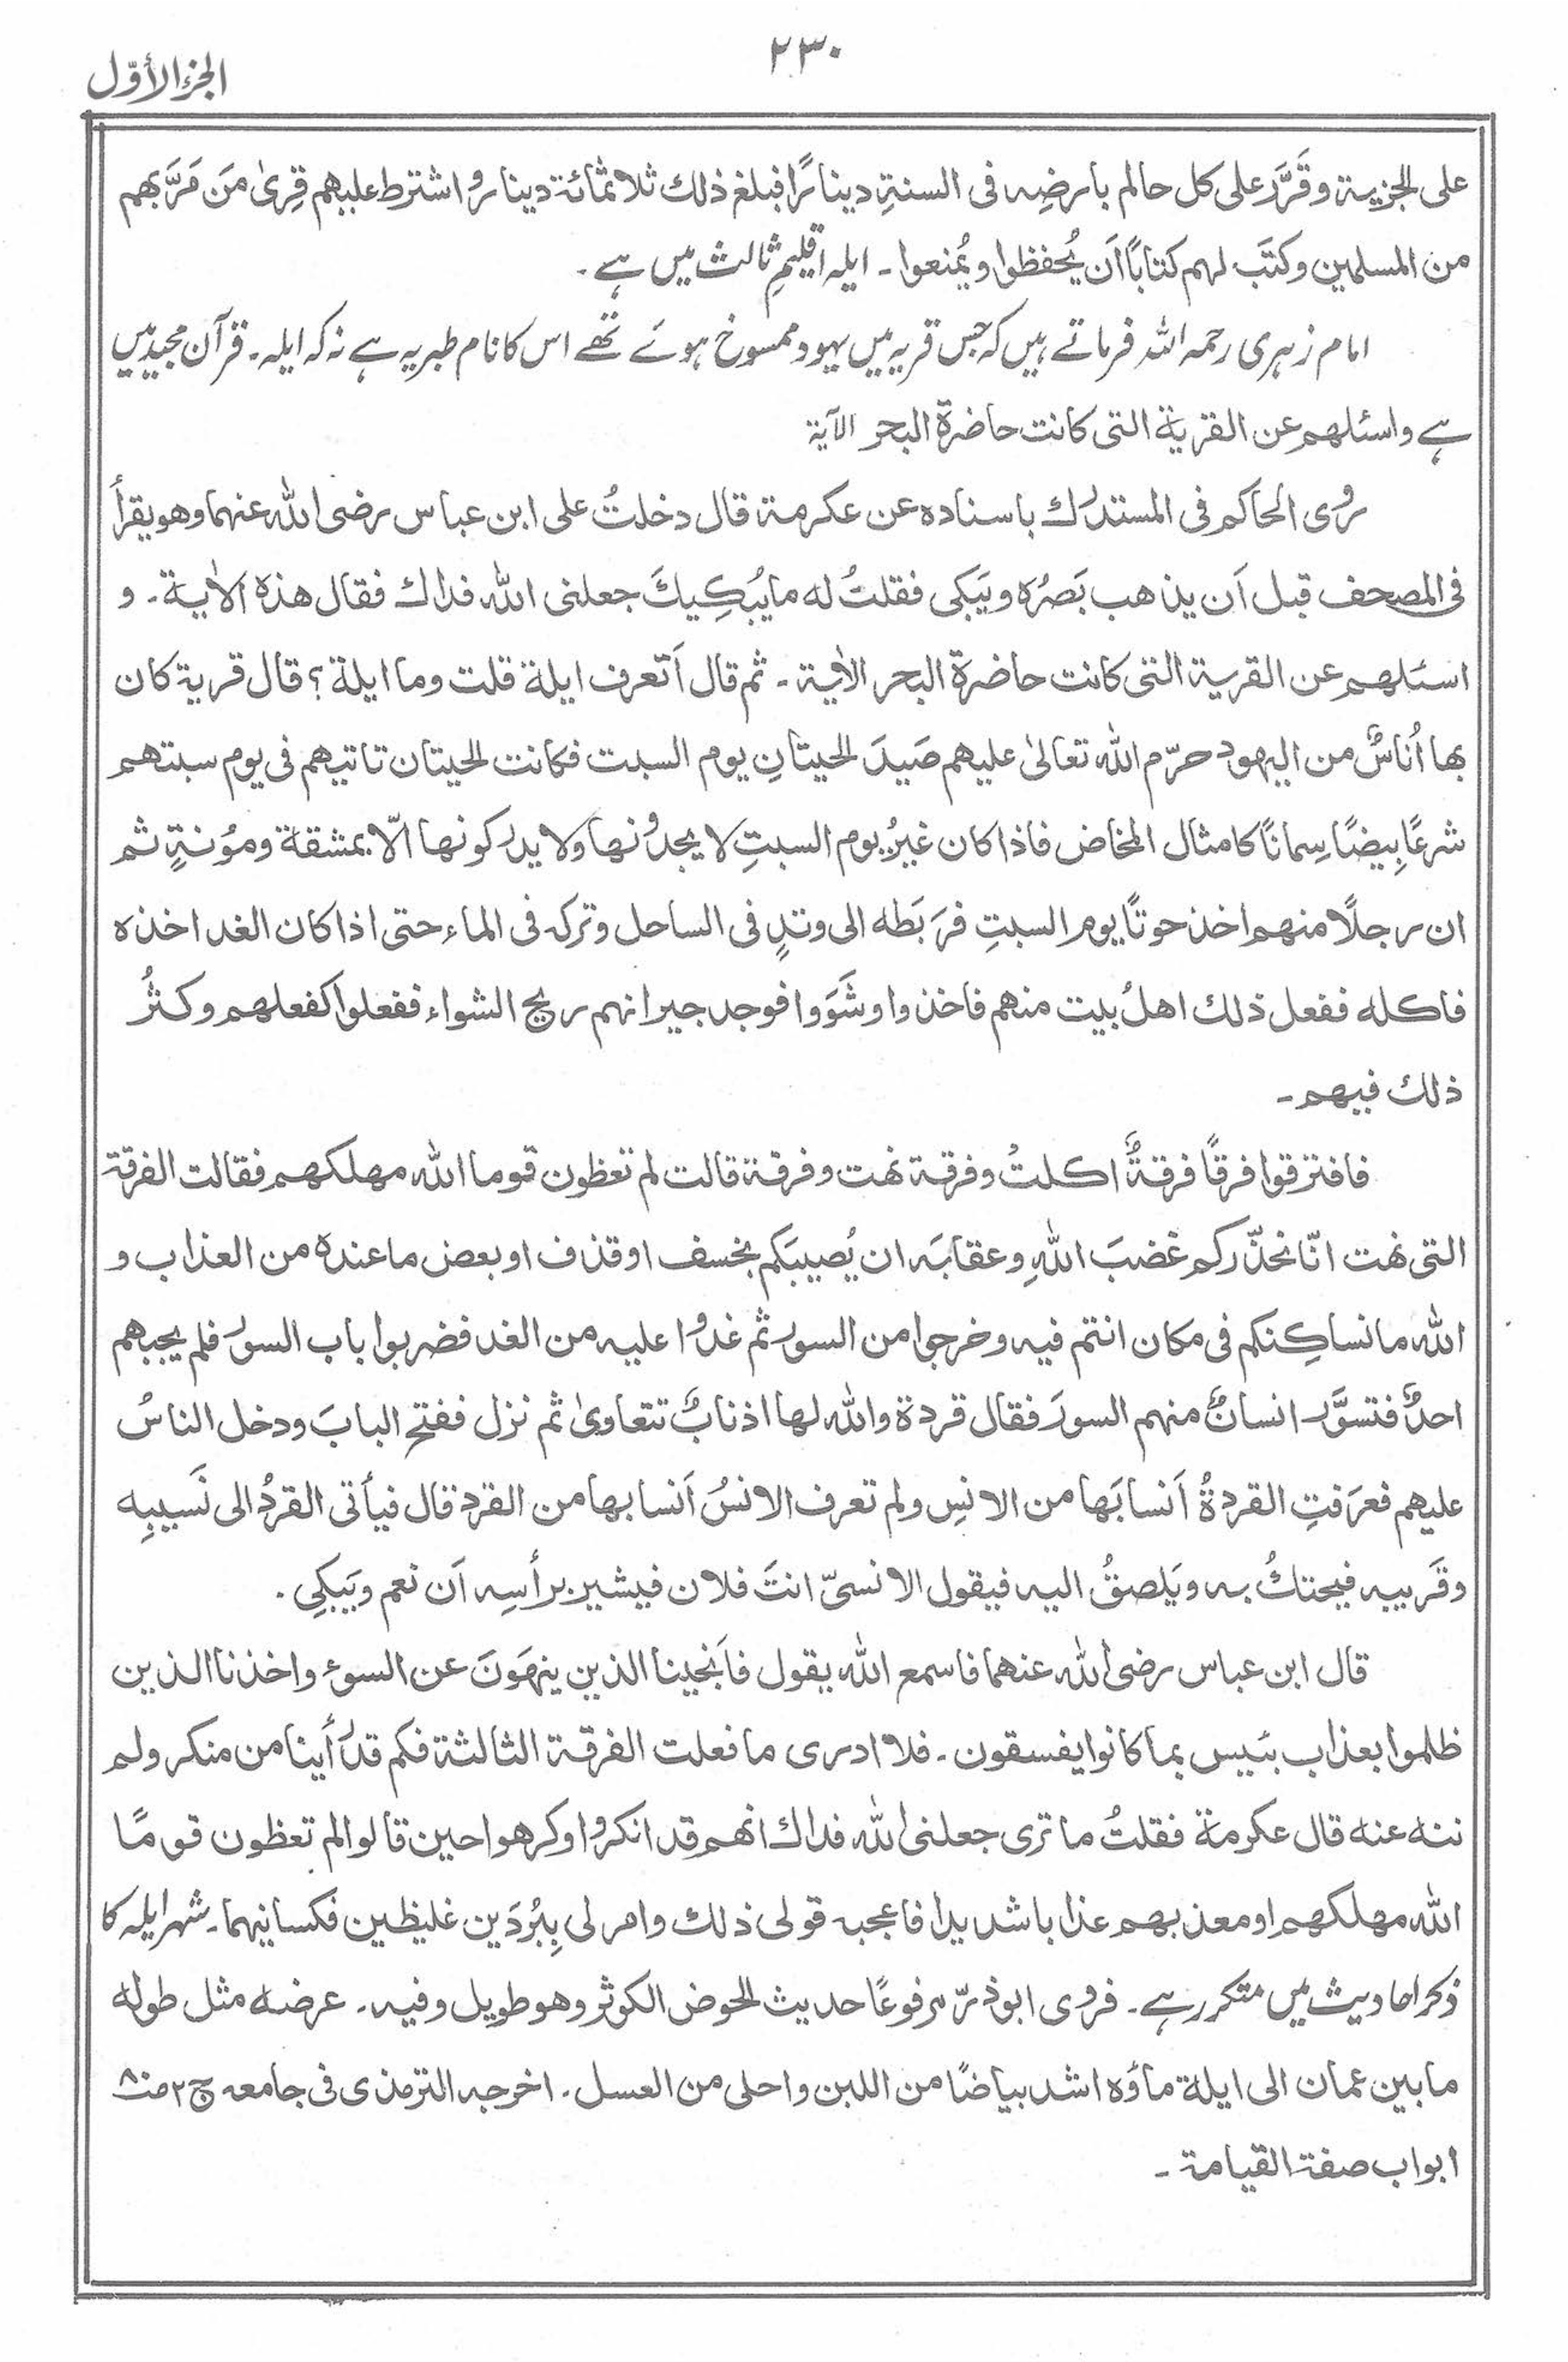 ٢٣٠
الجزء الأوّل
على الجزية وقَرَّر على كل حالم بارضِه فى السنةِ دينارًا فبلغ ذلك ثلاثمائة دينار واشترط عليهم قِرىٰ مَن مَرَّ بهم
من المسلمين وكتَب لهم كتاباً اَن يُحفظوا ويُمنعوا ۔ ايلہ اقلیمِ ثالث میں ہے ۔
امام زہری رحمہ اللہ فرماتے ہیں کہ جس قریہ میں یہود ممسوخ ہوئے تھے اس کا نام طبریہ ہے نہ کہ ایلہ ۔ قرآن مجید میں
ہے واسئلهم عن القرية التى كانت حاضرة البحر الآية
روى الحاكم فى المستدرك باسناده عن عكرمة قال دخلتُ على ابن عباس رضى الله عنهما وهو يقرأ
فى المصحف قبل اَن يذهب بَصَرُه ويَبكى فقلتُ له ما يُبكِيكَ جعلنى الله فداك فقال هذه الاٰية ۔ و
اسئلهم عن القرية التى كانت حاضرة البحر الاٰية ۔ ثم قال اَتعرف ايلة قلت وما ايلة ؟ قال قرية كان
بها اُناسٌ من اليهود حرّم الله تعالىٰ عليهم صَيدَ الحيتانِ يوم السبت فكانت الحيتان تاتيهم فى يوم سبتهم
شرعًا بِيضًا سِمانًا كامثال المخاض فاذا كان غيرُ يوم السبتِ لا يجدونها ولا يدركونها الّا بمشقة ومؤنةٍ ثم
ان رجلًا منهم اخذ حوتًا يوم السبتِ فرَبَطه الى وتدٍ فى الساحل وتركه فى الماء حتى اذا كان الغد اخذه
فاكله ففعل ذلك اهلُ بيت منهم فاخذوا وشَوَوا فوجد جيرانهم ريح الشواء ففعلوا كفعلهم وكثُر
ذلك فيهم ۔
فافترقوا فرقًا فرقةٌ اكلتُ وفرقة نهت وفرقة قالت لم تعظون قوما الله مهلكهم فقالت الفرقة
التى نهت انّا نحذّركم غضبَ اللهِ وعقابَه ان يُصيبَكم بخسف او قذف او بعض ما عنده من العذاب و
الله ما نساكِنكم فى مكان انتم فيه وخرجوا من السور ثم غدوا عليه من الغد فضربوا باب السور فلم يجبهم
احدٌ فتسوَّر انسانٌ منهم السورَ فقال قردة والله لها اذنابٌ تتعاوىٰ ثم نزل ففتح البابَ ودخل الناسُ
عليهم فعرَفتِ القردةُ اَنسابَها من الانسِ ولم تعرف الانسُ اَنسابها من القرد قال فيأتى القردُ الى نَسيبِه
وقَريبه فيحتكُ به ويَلصقُ اليه فيقول الانسىّ انتَ فلان فيشير برأسِه اَن نعم ويَبكِى ۔
قال ابن عباس رضى الله عنهما فاسمع الله يقول فاَنجينا الذين ينهَونَ عن السوء واخذنا الذين
ظلموا بعذاب بئيس بما كانوا يفسقون ۔ فلا ادرى ما فعلت الفرقة الثالثة فكم قد رأينا من منكر ولم
ننه عنه قال عكرمة فقلتُ ما ترى جعلنى الله فداك انهم قد انكروا وكرهوا حين قالوا لم تعظون قومًا
الله مهلكهم او معذبهم عذابا شديدا فاعجبه قولى ذلك وامر لى بِبُردَين غليظين فكسانيهما ۔ شہر ایلہ کا
ذکر احادیث میں متکرر ہے ۔ فروى ابوذرّ مرفوعًا حديث الحوض الكوثر وهو طويل وفيه ۔ عرضه مثل طوله
ما بين عمان الى ايلة ماؤه اشد بياضًا من اللبن واحلى من العسل ۔ اخرجه الترمذى فى جامعه ج ٢
ابواب صفة القيامة ۔